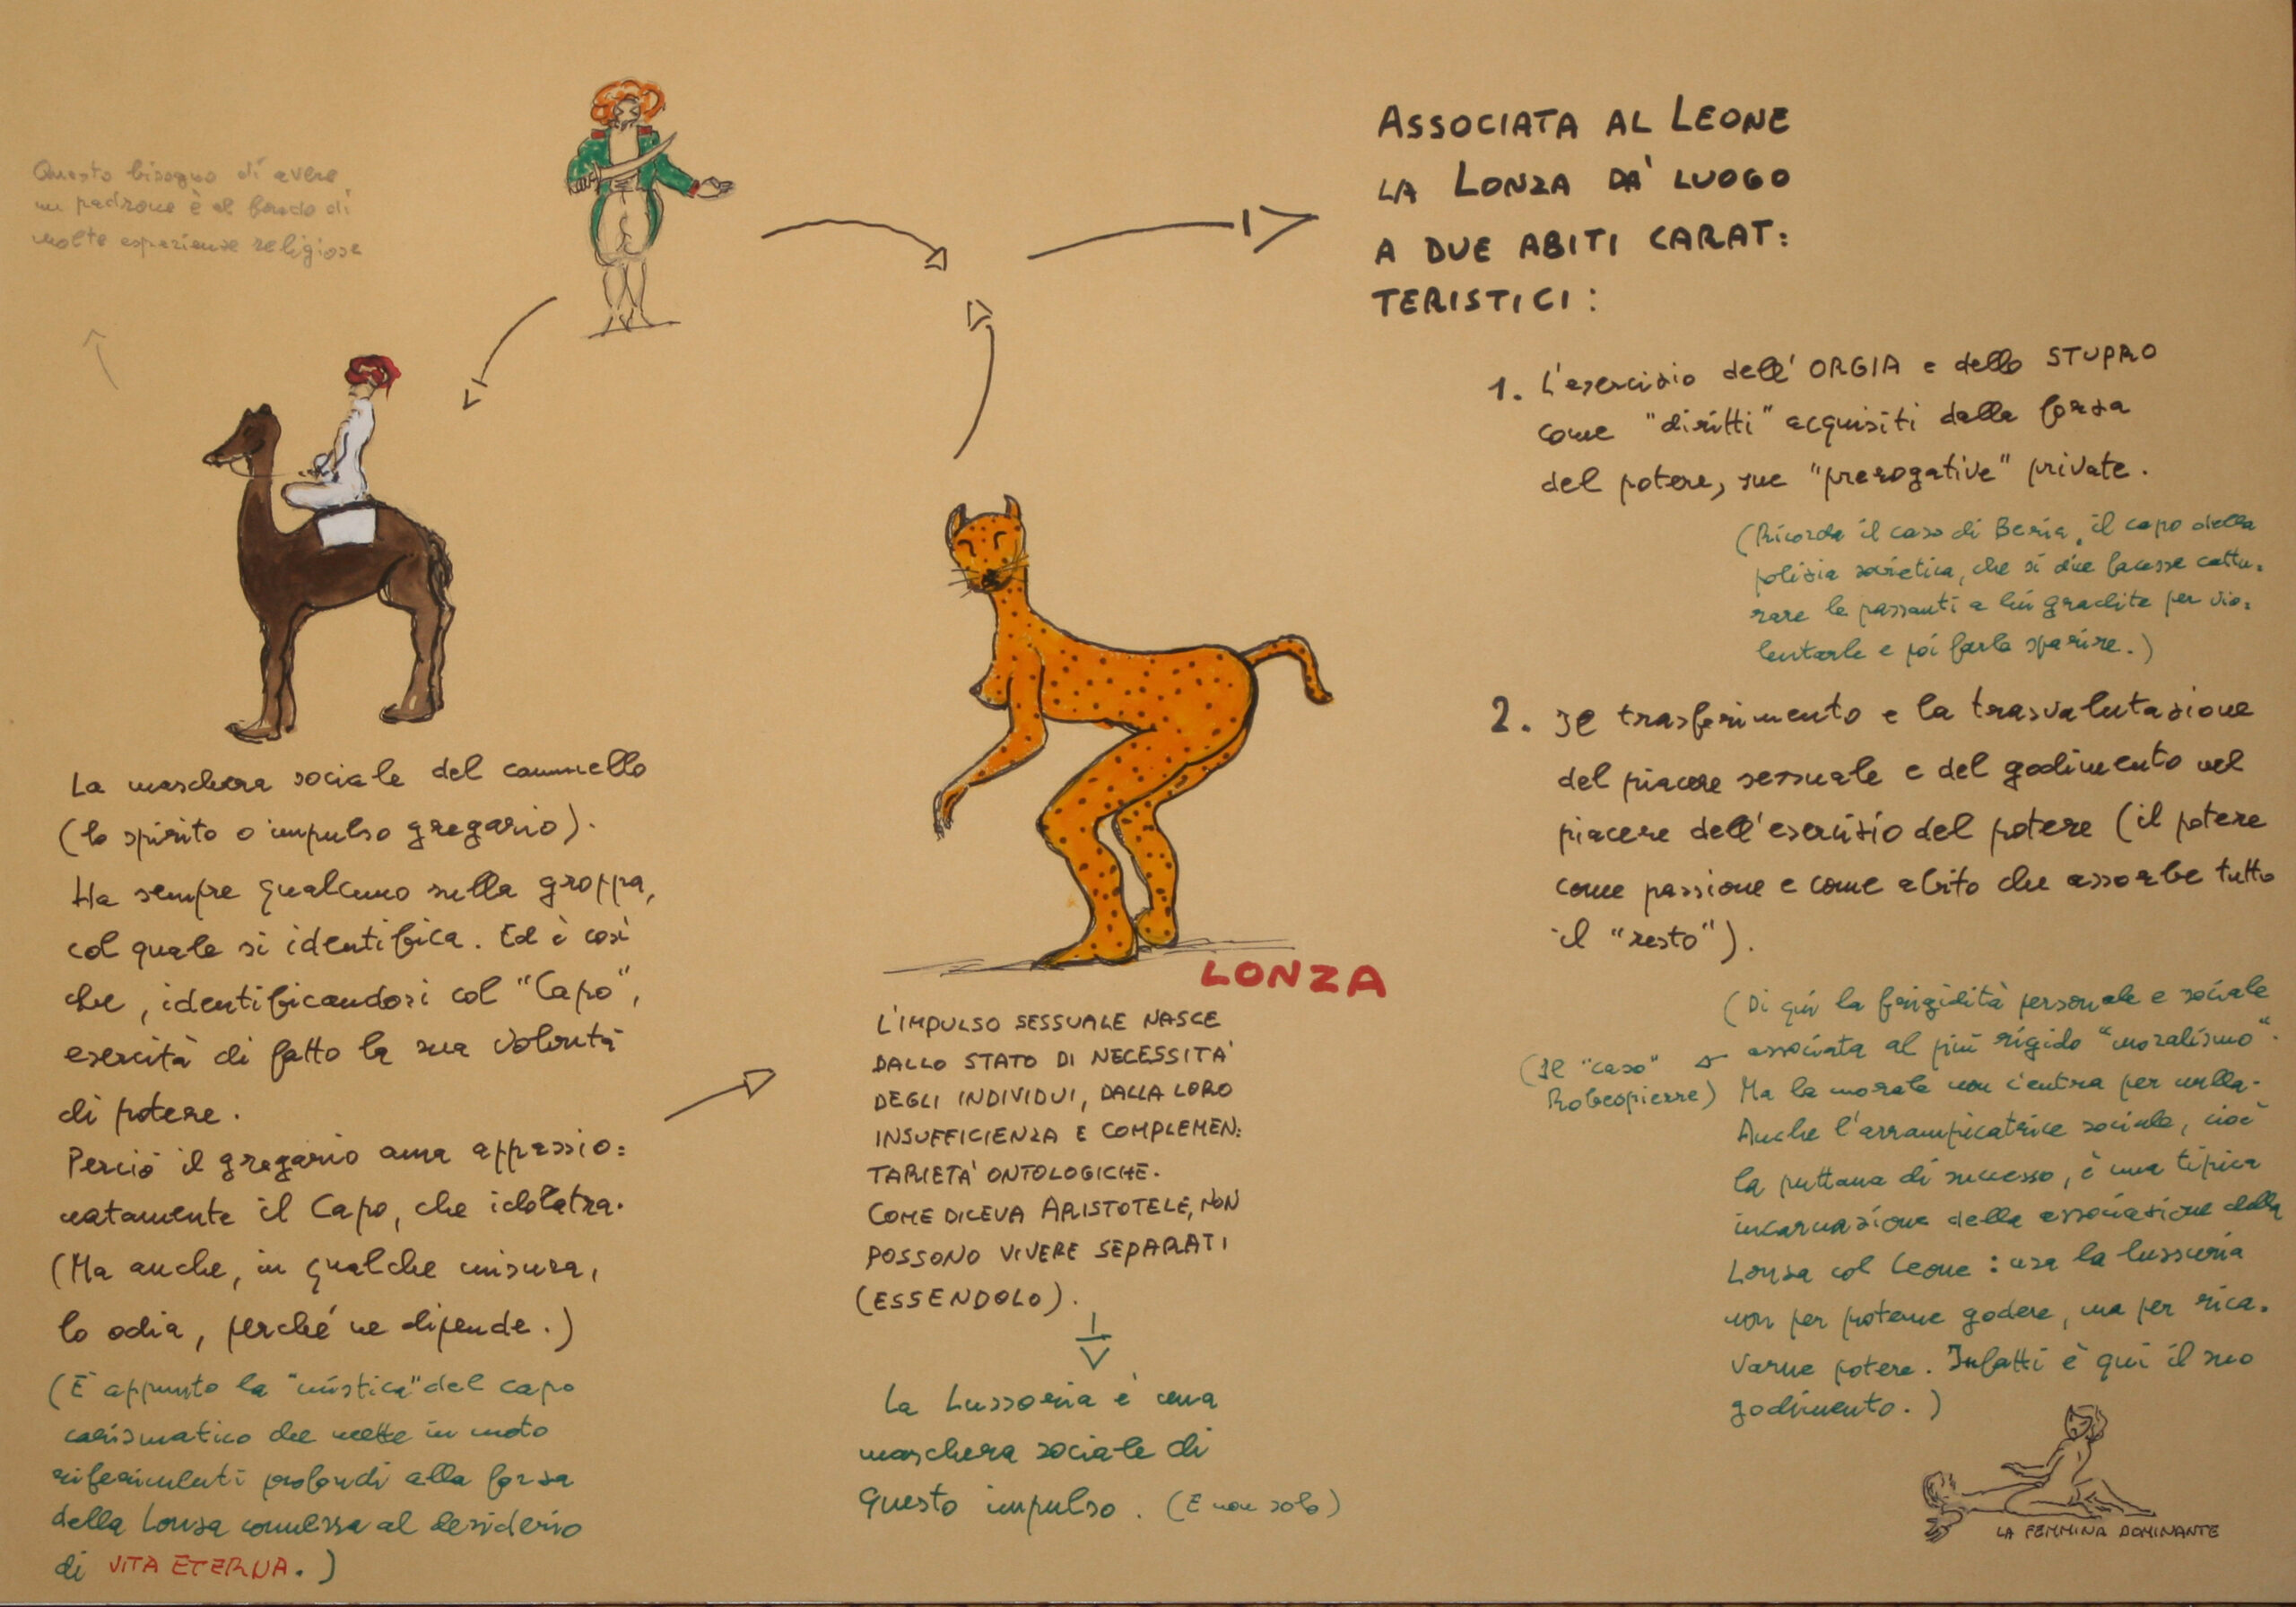 Questo bisogno di avere
un padrone è al fondo di
molte esperienze religiose
La maschera sociale del cammello
(lo spirito o impulso gregario).
Ha sempre qualcuno sulla groppa,
col quale si identifica. Ed è così
che, identificandosi col "Capo",
esercita di fatto la sua volontà
di potere.
Perciò il gregario ama appassio=
natamente il Capo, che idolatra.
(Ma anche, in qualche misura,
lo odia, perché ne dipende.)
(È appunto la "mistica" del capo
carismatico che mette in moto
riferimenti profondi alla forza
della Lonza connessa al desiderio
di VITA ETERNA.)
LONZA
L'IMPULSO SESSUALE NASCE
DALLO STATO DI NECESSITA'
DEGLI INDIVIDUI, DALLA LORO
INSUFFICIENZA E COMPLEMEN=
TARIETA' ONTOLOGICHE.
COME DICEVA ARISTOTELE, NON
POSSONO VIVERE SEPARATI
(ESSENDOLO).
La Lussuria è una
maschera sociale di
questo impulso. (E non solo)
ASSOCIATA AL LEONE
LA LONZA DA' LUOGO
A DUE ABITI CARAT=
TERISTICI:
1. L'esercizio dell'ORGIA e dello STUPRO
come "diritti" acquisiti dalla forza
del potere, sue "prerogative" private.
(Ricorda il caso di Beria, il capo della
polizia sovietica, che si dice facesse cattu=
rare le passanti a lui gradite per vio=
lentarle e poi farle sparire.)
2. Il trasferimento e la trasvalutazione
del piacere sessuale e del godimento nel
piacere dell'esercizio del potere (il potere
come passione e come abito che assorbe tutto
il "resto").
(Di qui la frigidità personale e sociale
associata al più rigido "moralismo".
(Il "caso"
Robespierre)
Ma la morale non c'entra per nulla.
Anche l'arrampicatrice sociale, cioè
la puttana di successo, è una tipica
incarnazione della associazione della
Lonza col Leone: usa la lussuria
non per poterne godere, ma per rica=
varne potere. Infatti è qui il suo
godimento.)
LA FEMMINA DOMINANTE